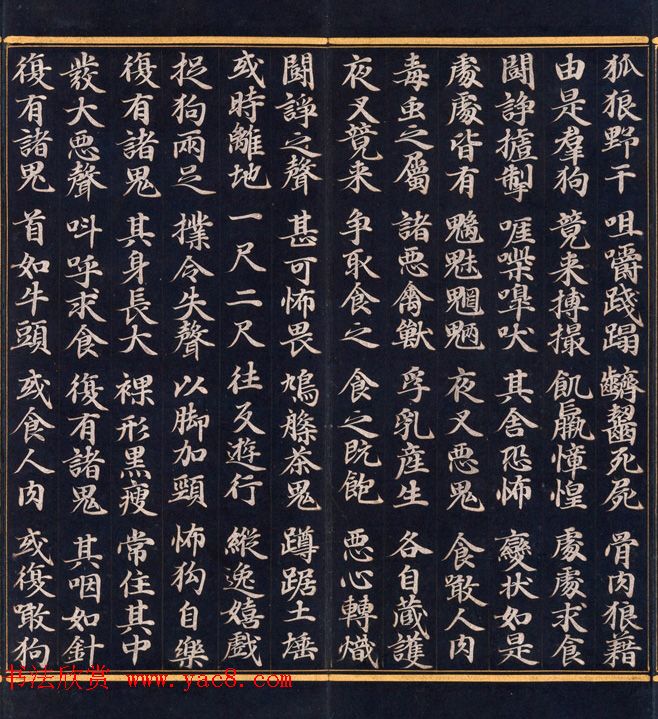 狐狼野干 咀嚼踐蹋 齧死屍 骨肉狼藉
由是羣狗 競来搏撮 飢羸慞惶 處處求食
鬪諍摣掣 啀喍嘷吠 其舍恐怖 變狀如是
處處皆有 魑魅魍魎 夜叉惡鬼 食噉人肉
毒虫之屬 諸惡禽獸 孚乳產生 各自藏護
夜叉競来 争取食之 食之既飽 惡心轉熾
鬪諍之聲 甚可怖畏 鳩槃茶鬼 蹲踞土埵
或時離地 一尺二尺 往反遊行 縱逸嬉戲
捉狗兩足 撲令失聲 以脚加頸 怖狗自樂
復有諸鬼 其身長大 裸形黑瘦 常住其中
發大惡聲 叫呼求食 復有諸鬼 其咽如針
復有諸鬼 首如牛頭 或食人肉 或復噉狗
书法欣赏 www.yac8.com